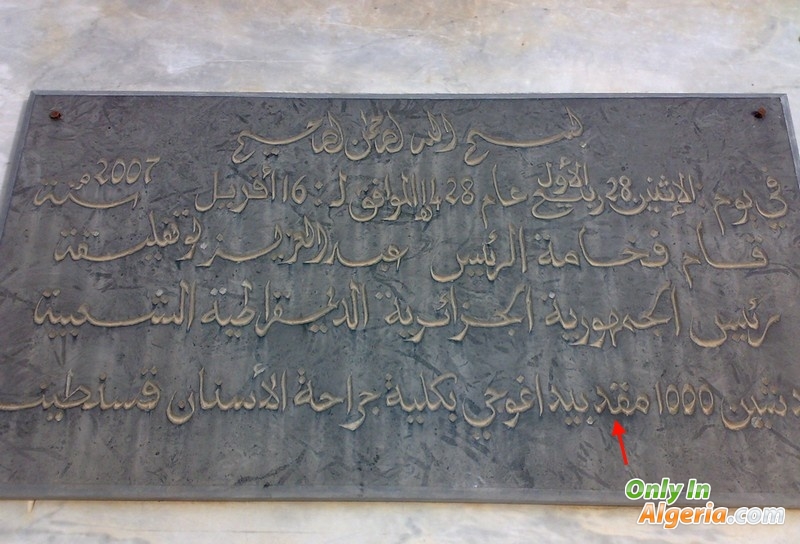 بسم الله الرحمن الرحيم
في يوم الإثنين 28 ربيع الأول عام 1428 هـ الموافق لـ : 16 أفريل سنة 2007 م
قام فخامة الرئيس عبد العزيز بوتفليقة
رئيس الجمهورية الجزائرية الديمقراطية الشعبية
بتدشين 1000 مقد بيداغوجي بكلية جراحة الأسنان قسنطينـ
Only In
Algeria.com